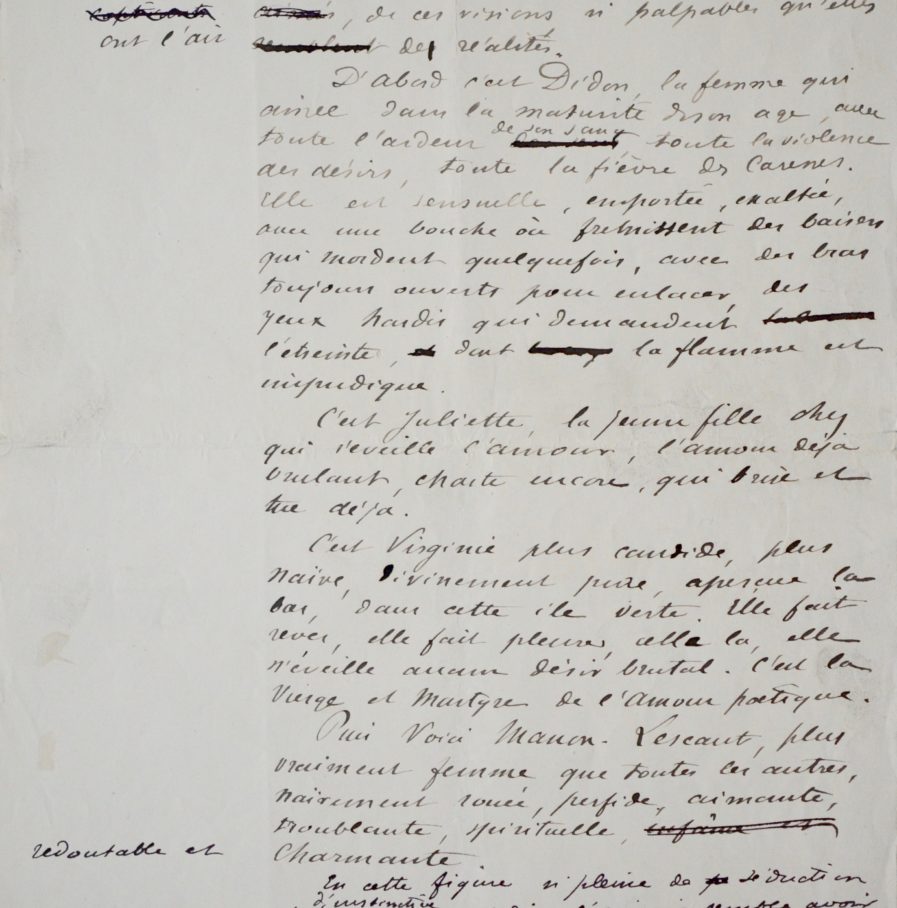 aimés, de ces visions si palpables qu'elles
ont l'air semblent des réalités.
D'abord c'est Didon, la femme qui
aime dans la maturité de son age, avec
toute l'ardeur de son sang, toute la violence
des désirs, toute la fièvre des Caresses.
Elle est sensuelle, emportée, exaltée,
avec une bouche où fremissent des baisers
qui mordent quelquefois, avec des bras
toujours ouverts pour enlacer, des
yeux hardis qui demandent
l'étreinte, et dont la flamme est
impudique.
C'est Juliette, la jeune fille chez
qui s'eveille l'amour, l'amour déjà
brulant, chaste encore, qui brise et
tue déja.
C'est Virginie plus candide, plus
naïve, divinement pure, aperçue la
bas, dans cette ile verte. Elle fait
rever, elle fait pleurer, celle la, elle
n'éveille aucun désir brutal. C'est la
Vierge et Martyre de l'Amour poètique.
Puis Voici Manon-Lescaut, plus
vraiment femme que toutes les autres,
naïvement rouée, perfide, aimante,
troublante, spirituelle, infâme et
redoutable et Charmante.
En cette figure si pleine de séduction
d'instinctive semble avoir